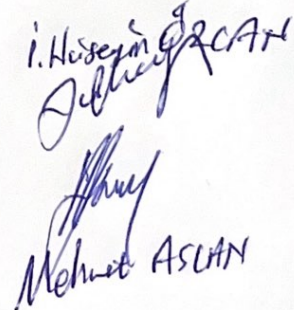 İ. Hüseyin ÖZCAN
Mehmet ASLAN